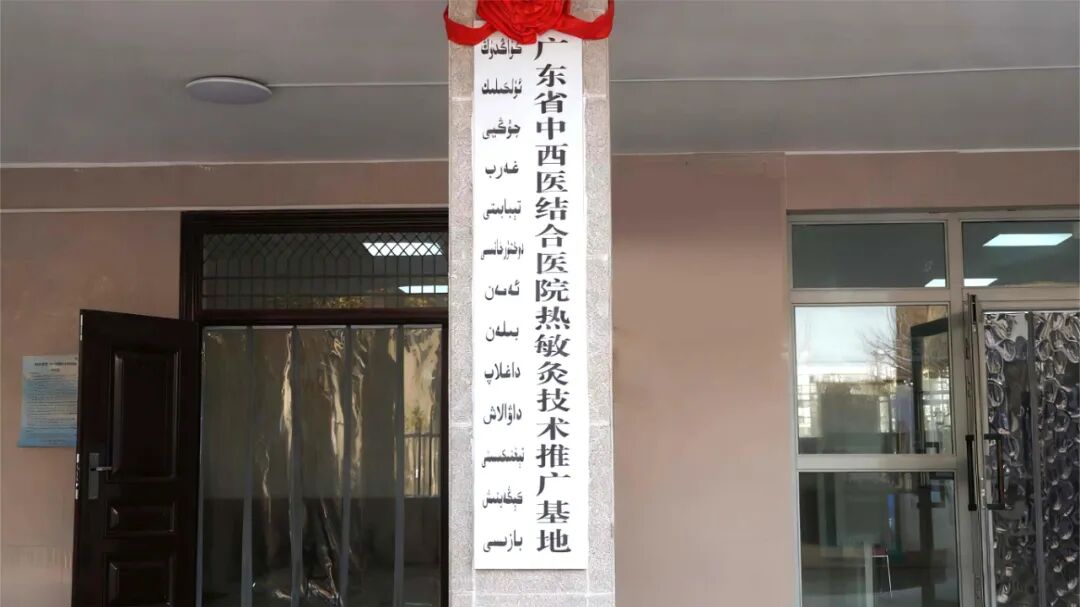 广东省中西医结合医院热敏灸技术推广基地
گۇاڭدۇڭ
ئۆلكىلىك
جۇڭيى
غەرب
تېبابىتى
دوختۇرخانىسى
ئەمەن
بىلەن
داغلاپ
داۋالاش
تېخنىكىسىنى
كېڭەيتىش
بازىسى